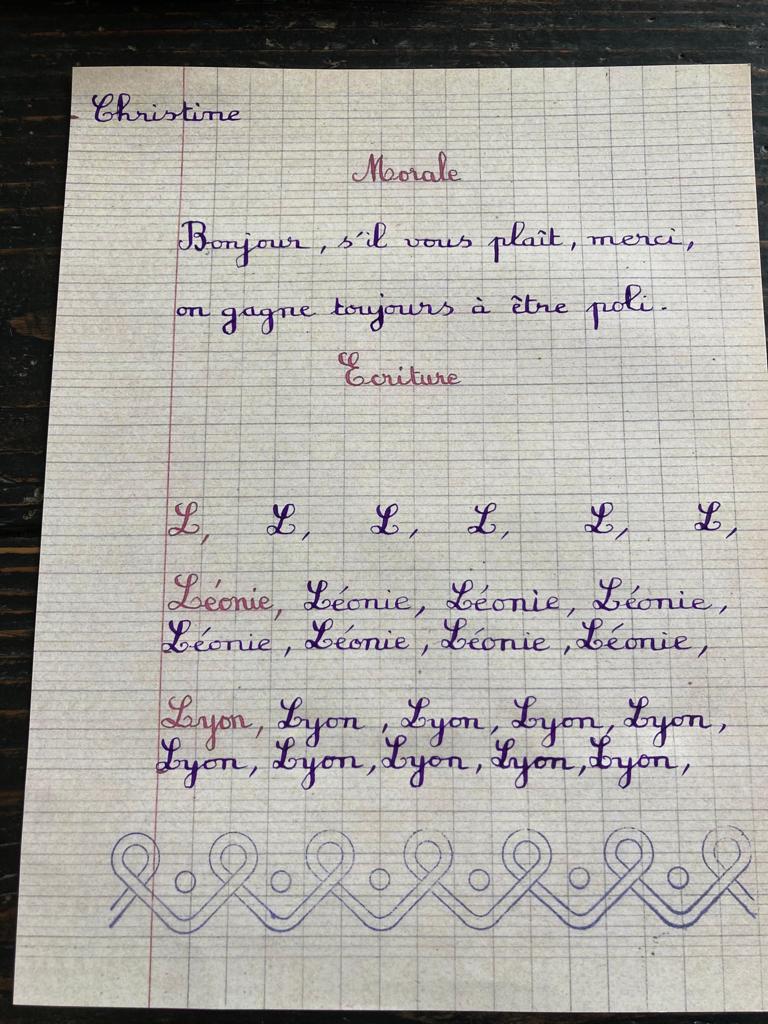 Christine
Morale
Bonjour, s'il vous plaît, merci,
on gagne toujours à être poli.
Ecriture
L, L, L, L, L, L,
Léonie, Léonie, Léonie, Léonie,
Léonie, Léonie, Léonie, Léonie,
Lyon, Lyon, Lyon, Lyon, Lyon,
Lyon, Lyon, Lyon, Lyon, Lyon,